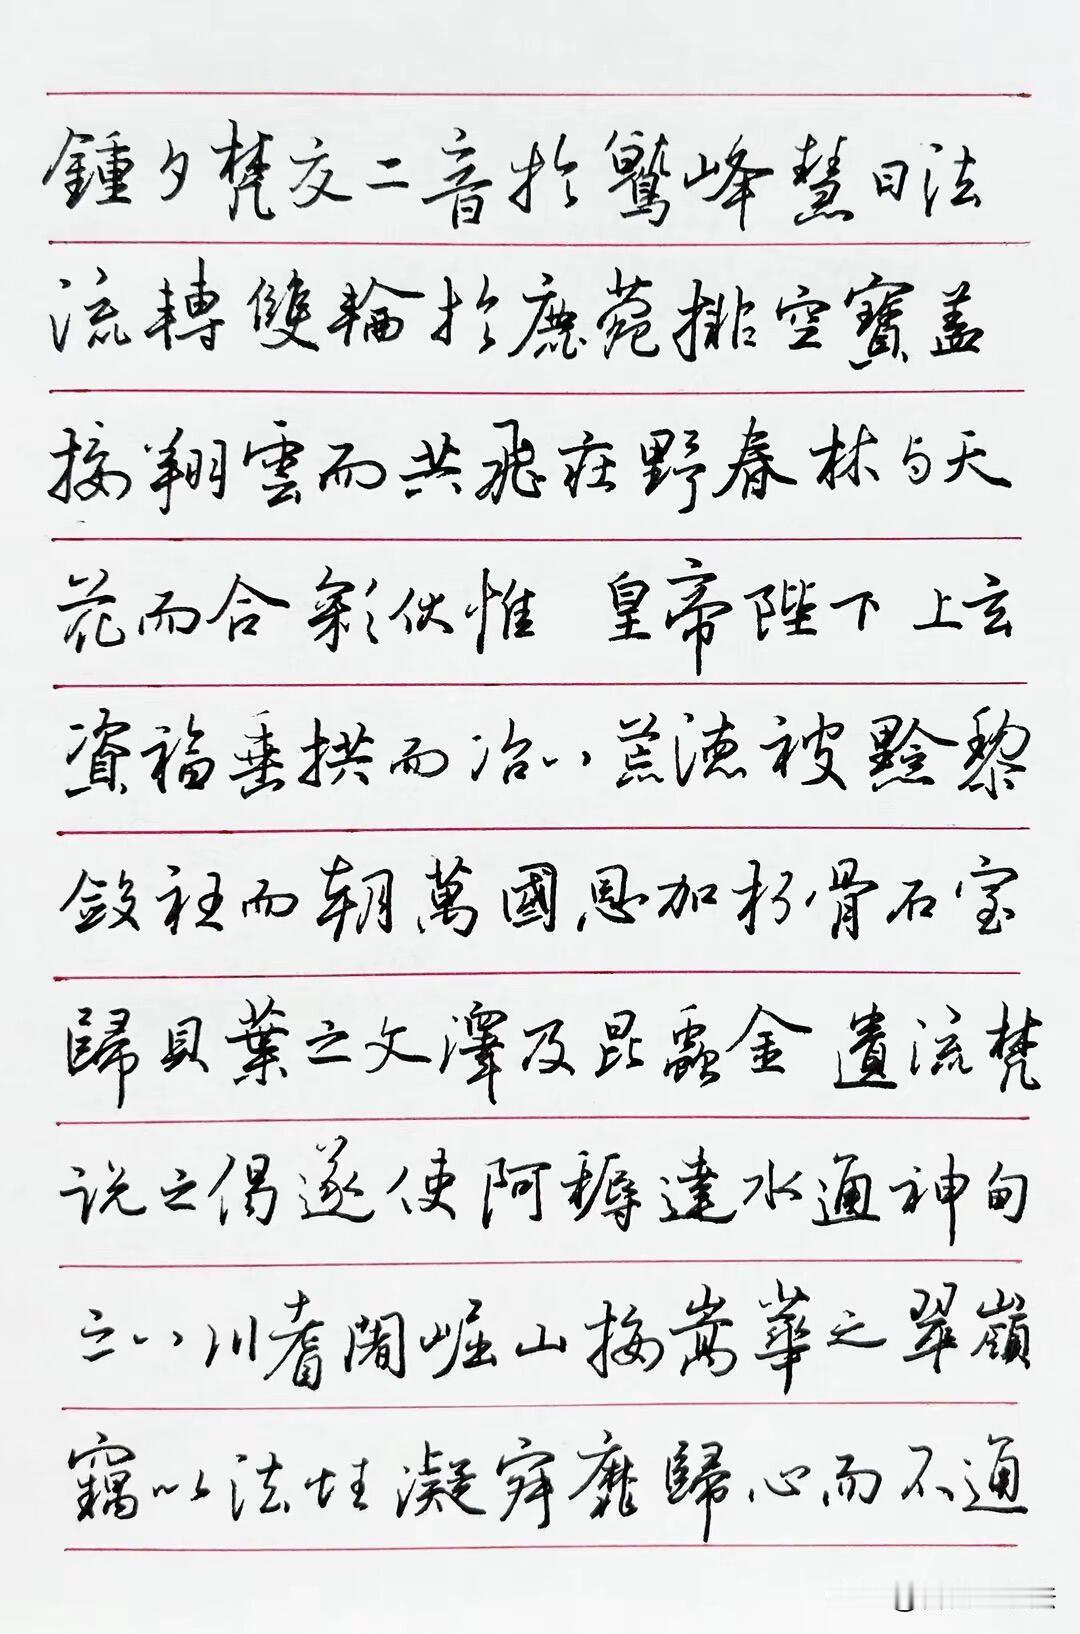 鍾夕梵交二音於鷲峰慧日法
流轉雙輪於鹿菀排空寶蓋
接翔雲而共飛莊野春林与天
花而合彩伏惟 皇帝陛下上玄
資福垂拱而治八荒德被黔黎
斂衽而朝萬國恩加朽骨石室
歸貝葉之文澤及昆蟲金匱流梵
説之偈遂使阿耨達水通神甸
之八川耆闍崛山接嵩華之翠嶺
竊以法性凝寂靡歸心而不通